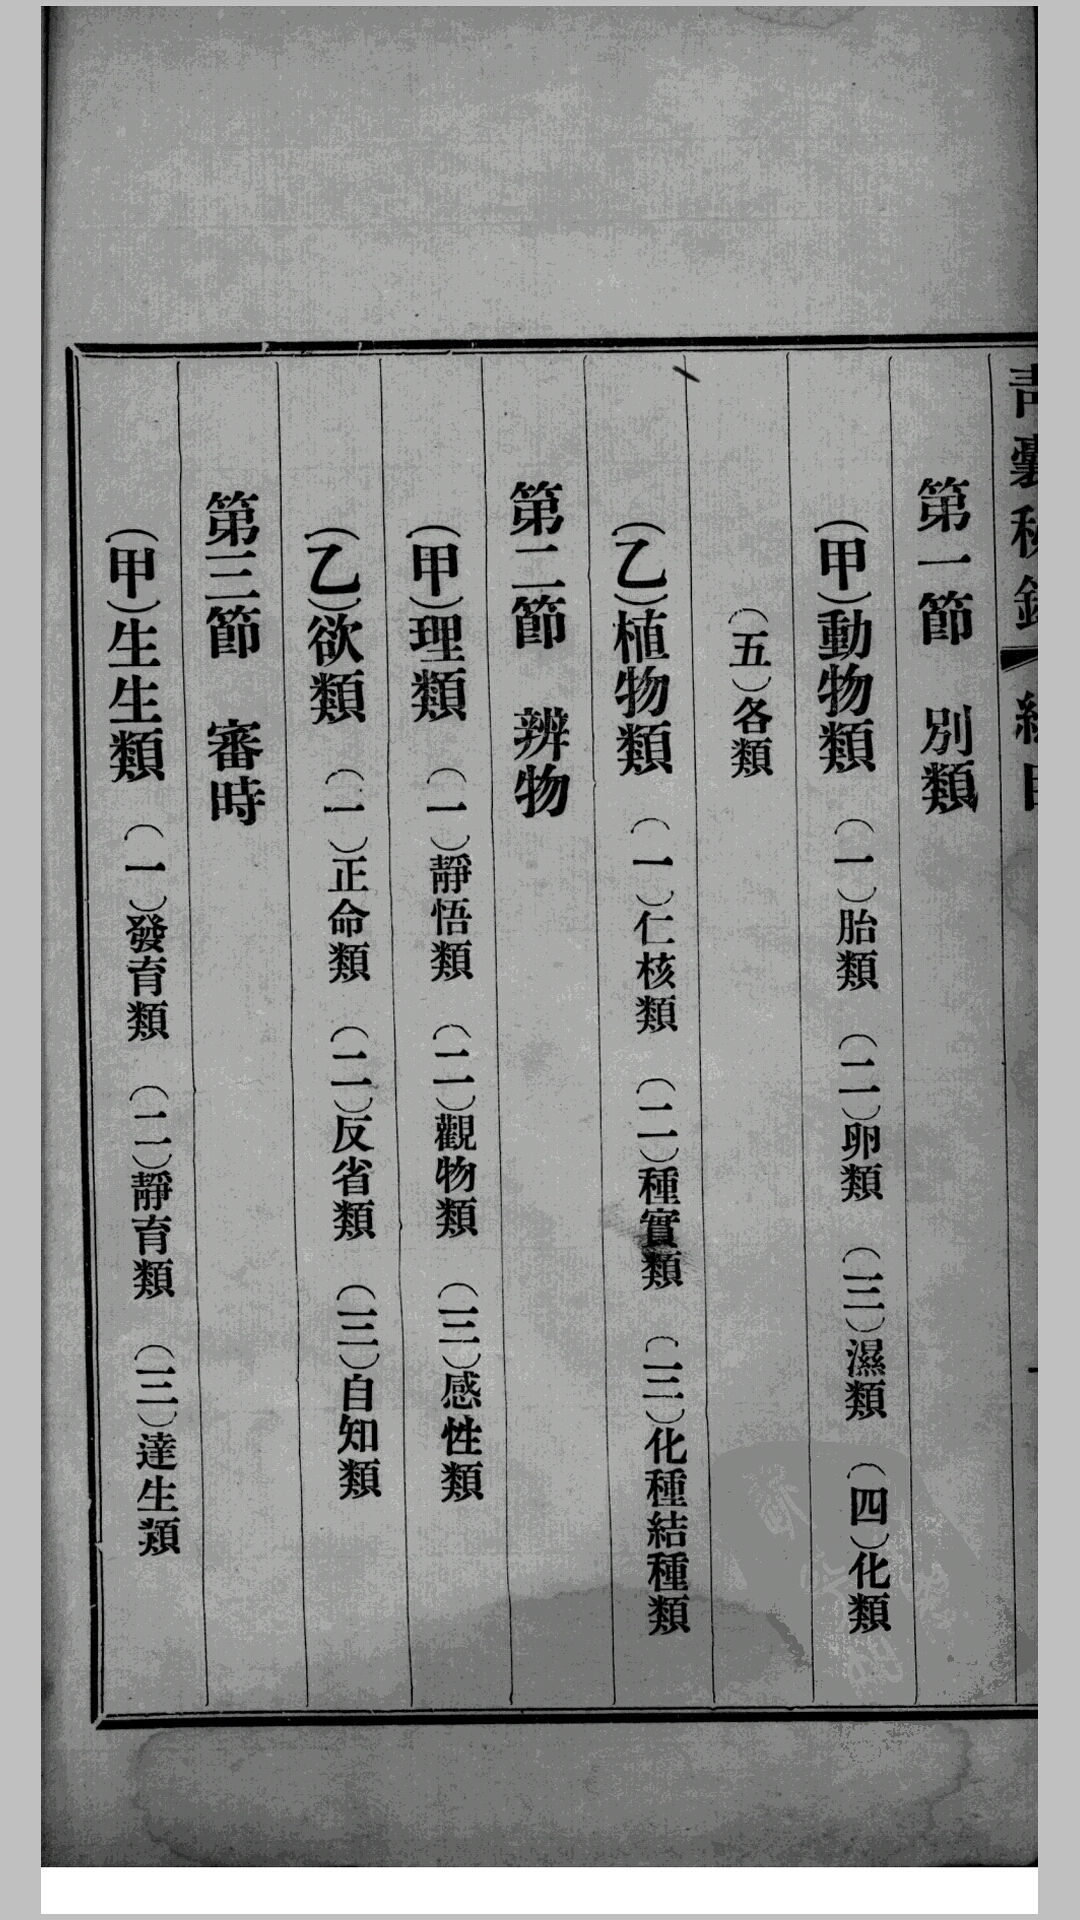 青囊秘錄
總目
第一節　別類
（甲）動物類　（一）胎類　（二）卵類　（三）濕類　（四）化類
（五）各類
（乙）植物類　（一）仁核類　（二）種實類　（三）化種結種類
第二節　辨物
（甲）理類　（一）靜悟類　（二）觀物類　（三）感性類
（乙）欲類　（一）正命類　（二）反省類　（三）自知類
第三節　審時
（甲）生生類　（一）發育類　（二）靜育類　（三）達生類